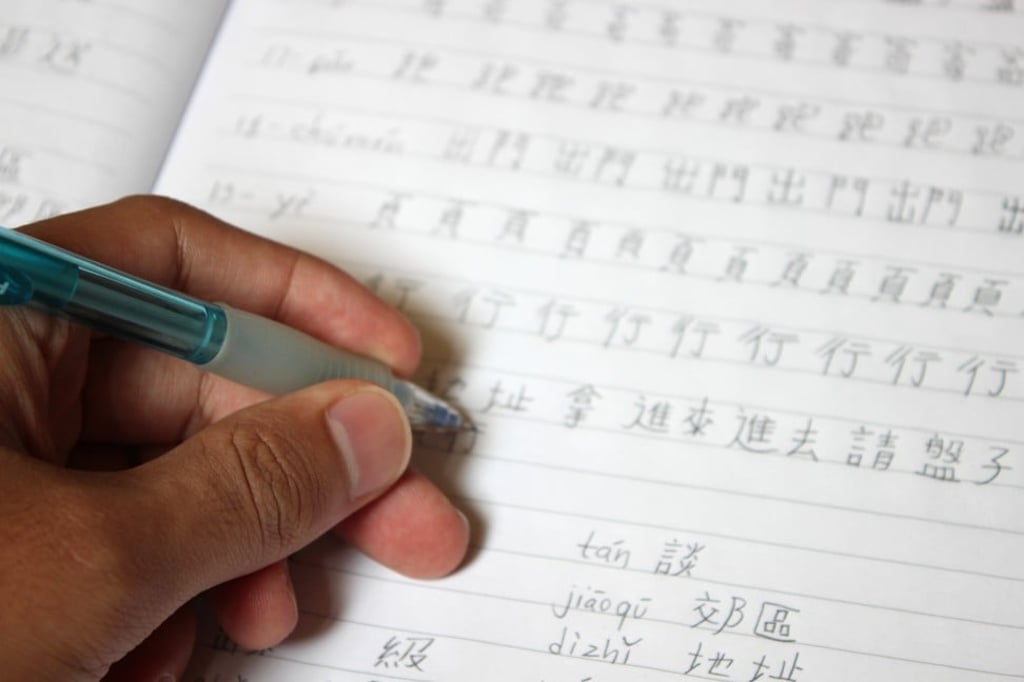 17- pǎo 跑 跑 跑 跑 跑 跑 跑 跑 跑 跑
18- chūmén 出門 出門 出門 出門 出門 出
19- yè 頁 頁 頁 頁 頁 頁 頁 頁 頁 頁 頁 頁
行 行 行 行 行 行 行 行 行
址 拿 進來 進去 請 盤子
tán 談
jiāoqū 郊區
級 dìzhǐ 地址